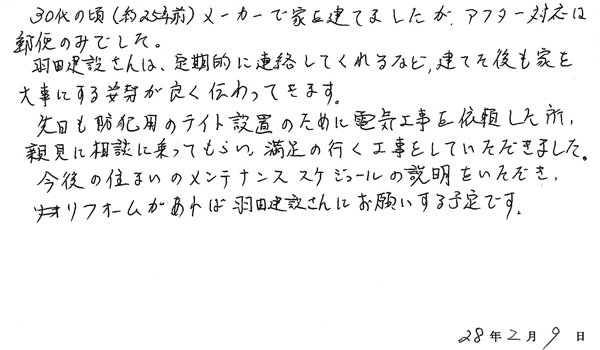 30代の頃(約25年前)メーカーで家を建てましたが、アフター対応は
郵便のみでした。
羽田建設さんは、定期的に連絡してくれるなど、建てた後も家を
大事にする姿勢が良く伝わってきます。
先日も防犯用のライト設置のために電気工事を依頼した所、
親身に相談に乗ってもらい、満足の行く工事をしていただきました。
今後の住まいのメンテナンススケジュールの説明をいただき、
リフォームがあれば羽田建設さんにお願いする予定です。
28年2月9日